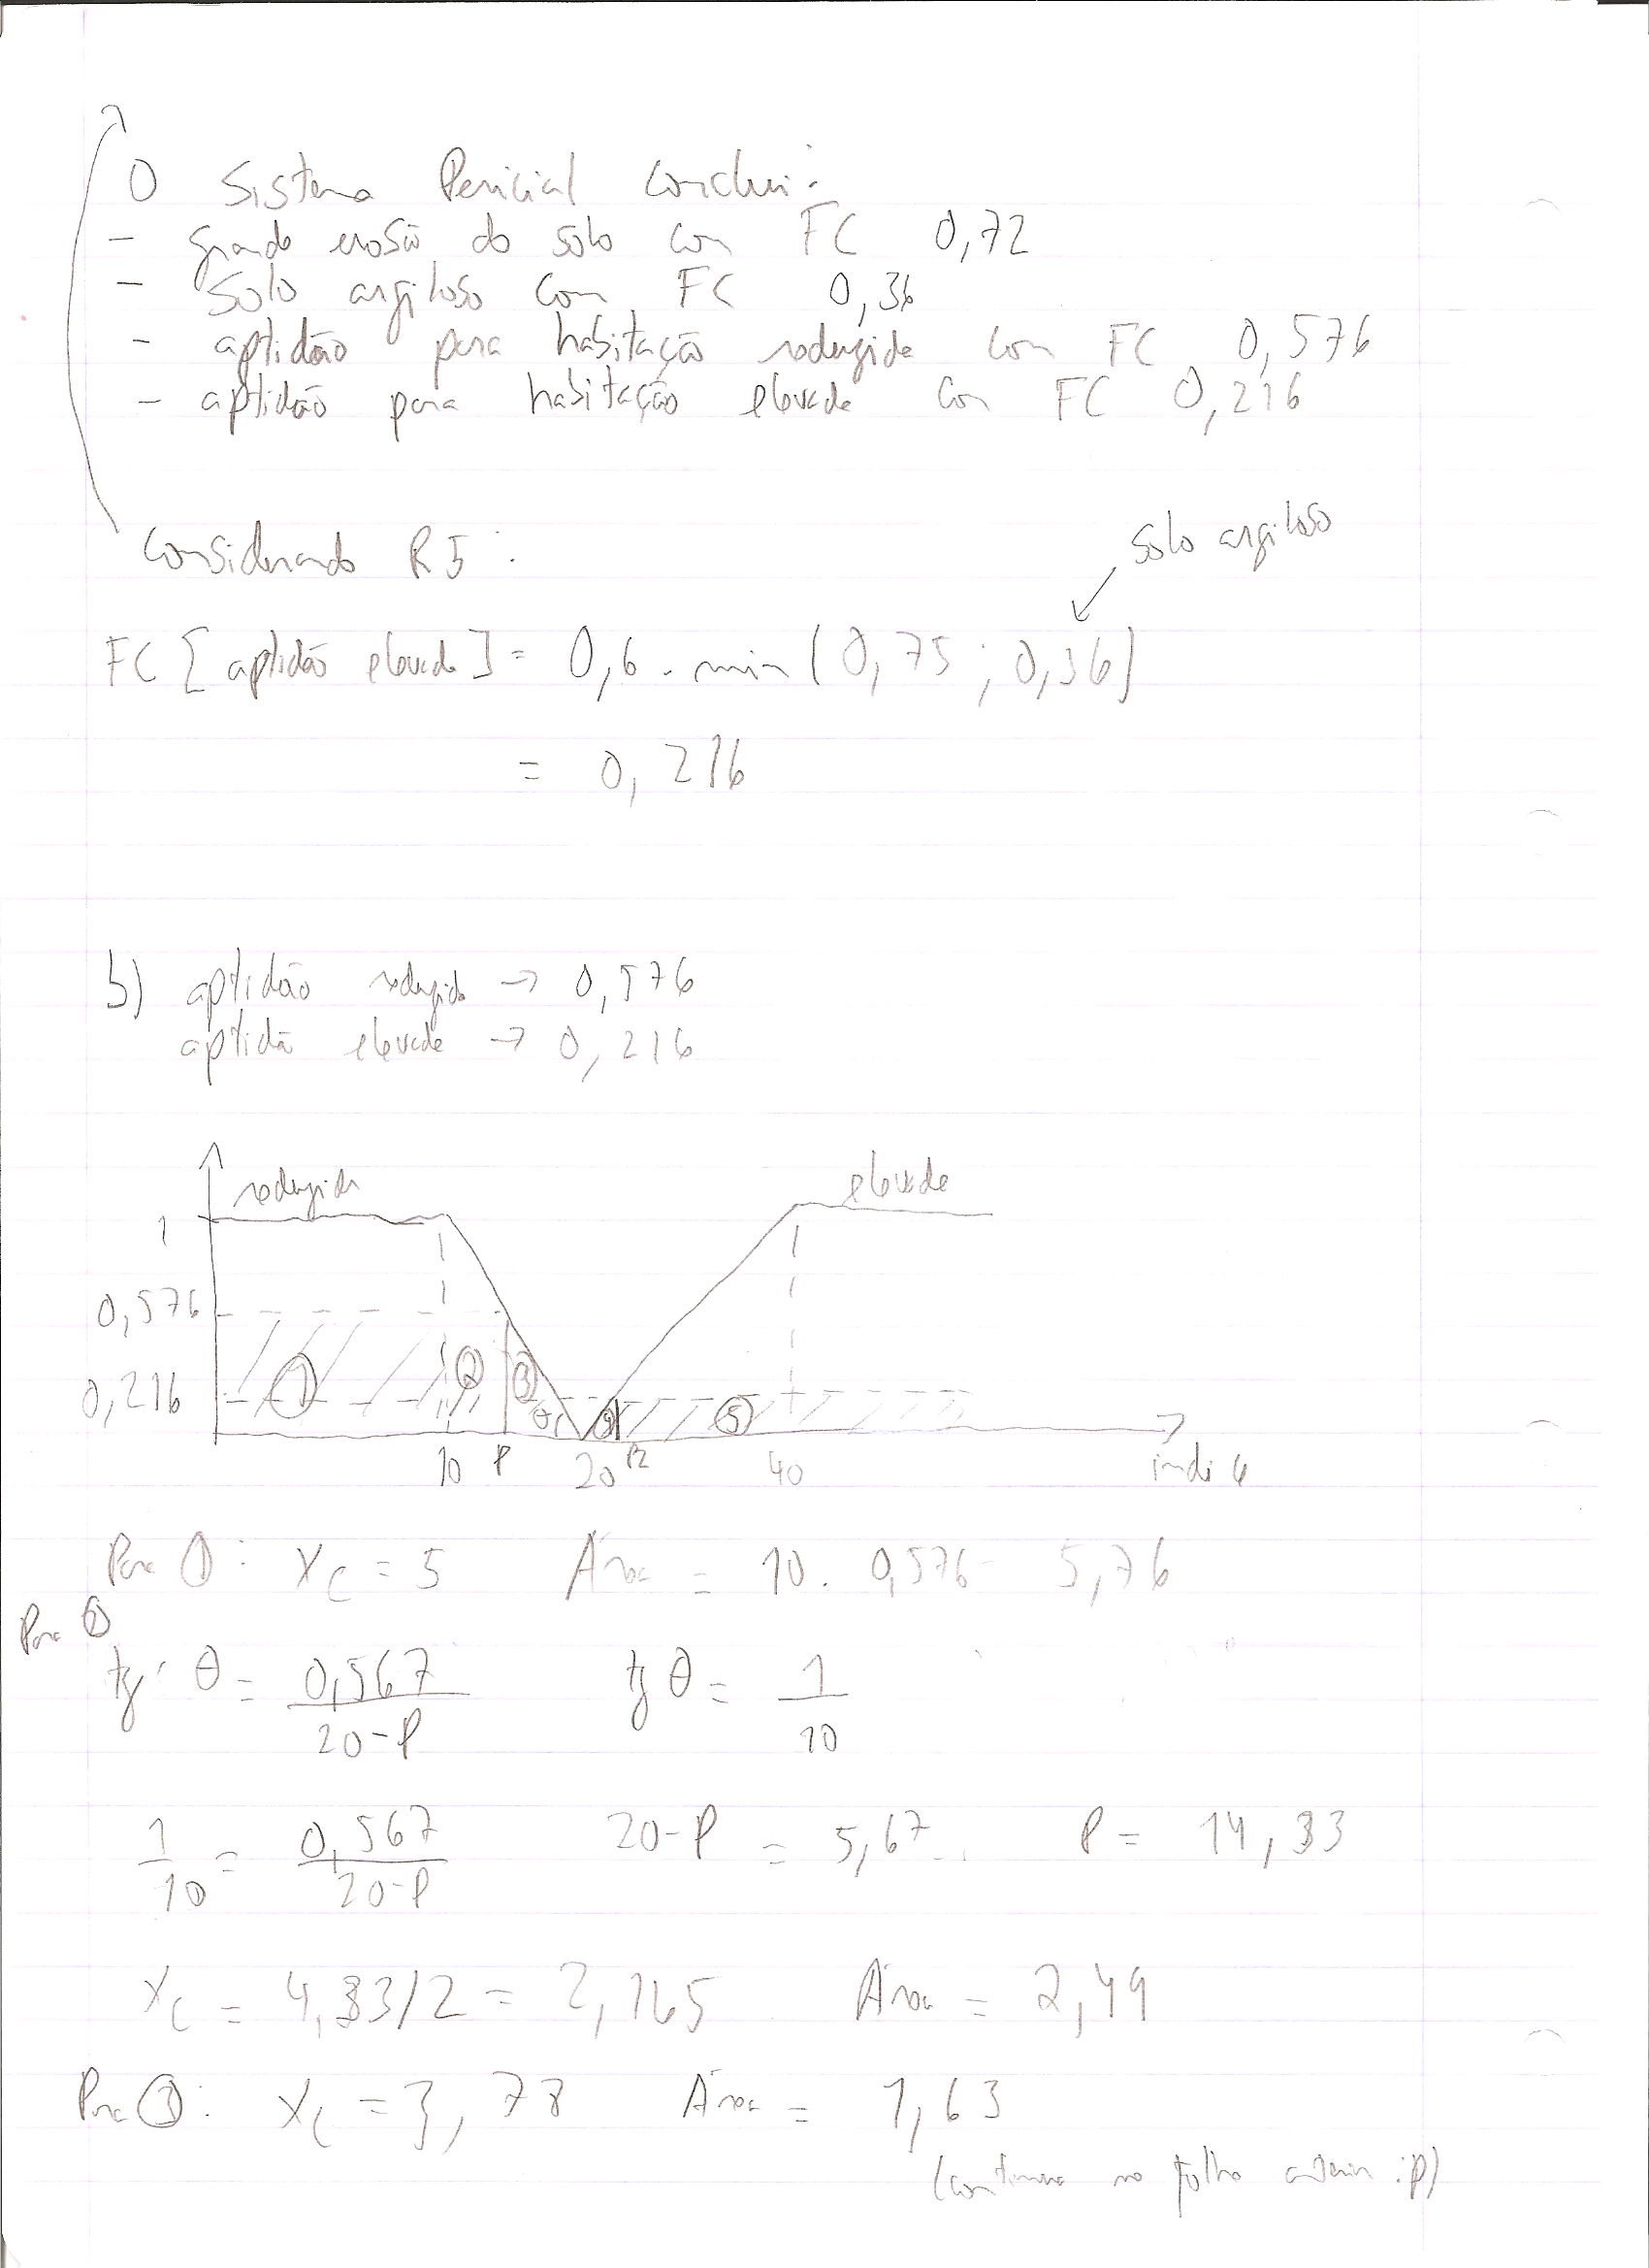 O Sistema Pericial conclui:
- grande erosão do solo com FC 0,72
- Solo argiloso com FC 0,36
- aptidão para habitação reduzida com FC 0,576
- aptidão para habitação elevada com FC 0,216
Considerando R5:
solo argiloso
FC [aptidão elevada] = 0,6 . min (0,75 ; 0,36)
= 0,216
b) aptidão reduzida → 0,576
aptidão elevada → 0,216
reduzida elevada
1
0,576
1 2 3
0,216 θ 4 5
10 P 20 P2 40 indice
Para 1: Xc = 5 Área = 10. 0,576 = 5,76
Para 2
tg θ = 0,567 / 20-P tg θ = 1 / 10
1 / 10 = 0,567 / 20-P 20-P = 5,67 P = 14,33
Xc = 4,33/2 = 2,165 Área = 2,49
Para 3: Xc = 3,78 Área = 1,63
(continua na folha anterior :p)